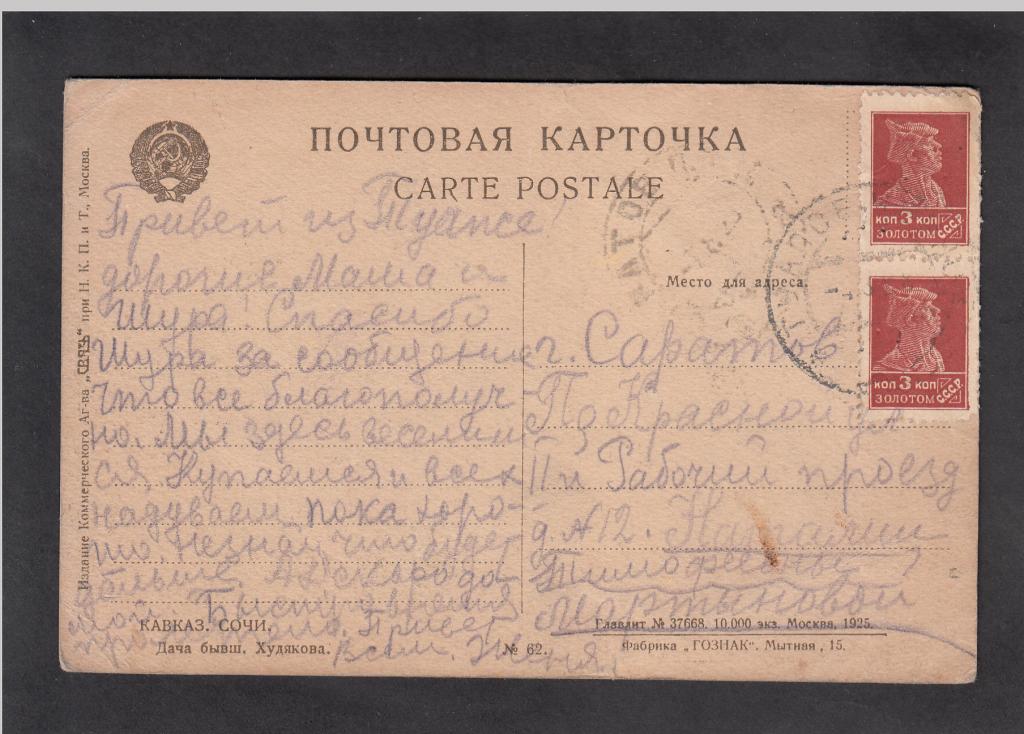 ПОЧТОВАЯ КАРТОЧКА
CARTE POSTALE
Издание Коммерческого Аг-ва „СВЯЗЬ“ при Н. К. П. и Т., Москва.
Привет из Туапсе!
дорогие Мама и
Шура! Спасибо
Шура за сообщение
что все благополуч-
но. Мы здесь веселим
ся. Купаемся и всех
надуваем пока хоро-
шо. Незнаю, что будет
дальше. скоро до
мой. Быстро время
прошло. Привет
всем. Женя.
КАВКАЗ. СОЧИ.
Дача бывш. Худякова.
№ 62.
КОП 3 КОП
ЗОЛОТОМ
СССР
КОП 3 КОП
ЗОЛОТОМ
СССР
Место для адреса.
г. Саратов
Рабочий проезд
д. №12.
Тимофеевны
Мартыновой
Главлит № 37668. 10.000 экз. Москва, 1925.
Фабрика „ГОЗНАК“. Мытная, 15.